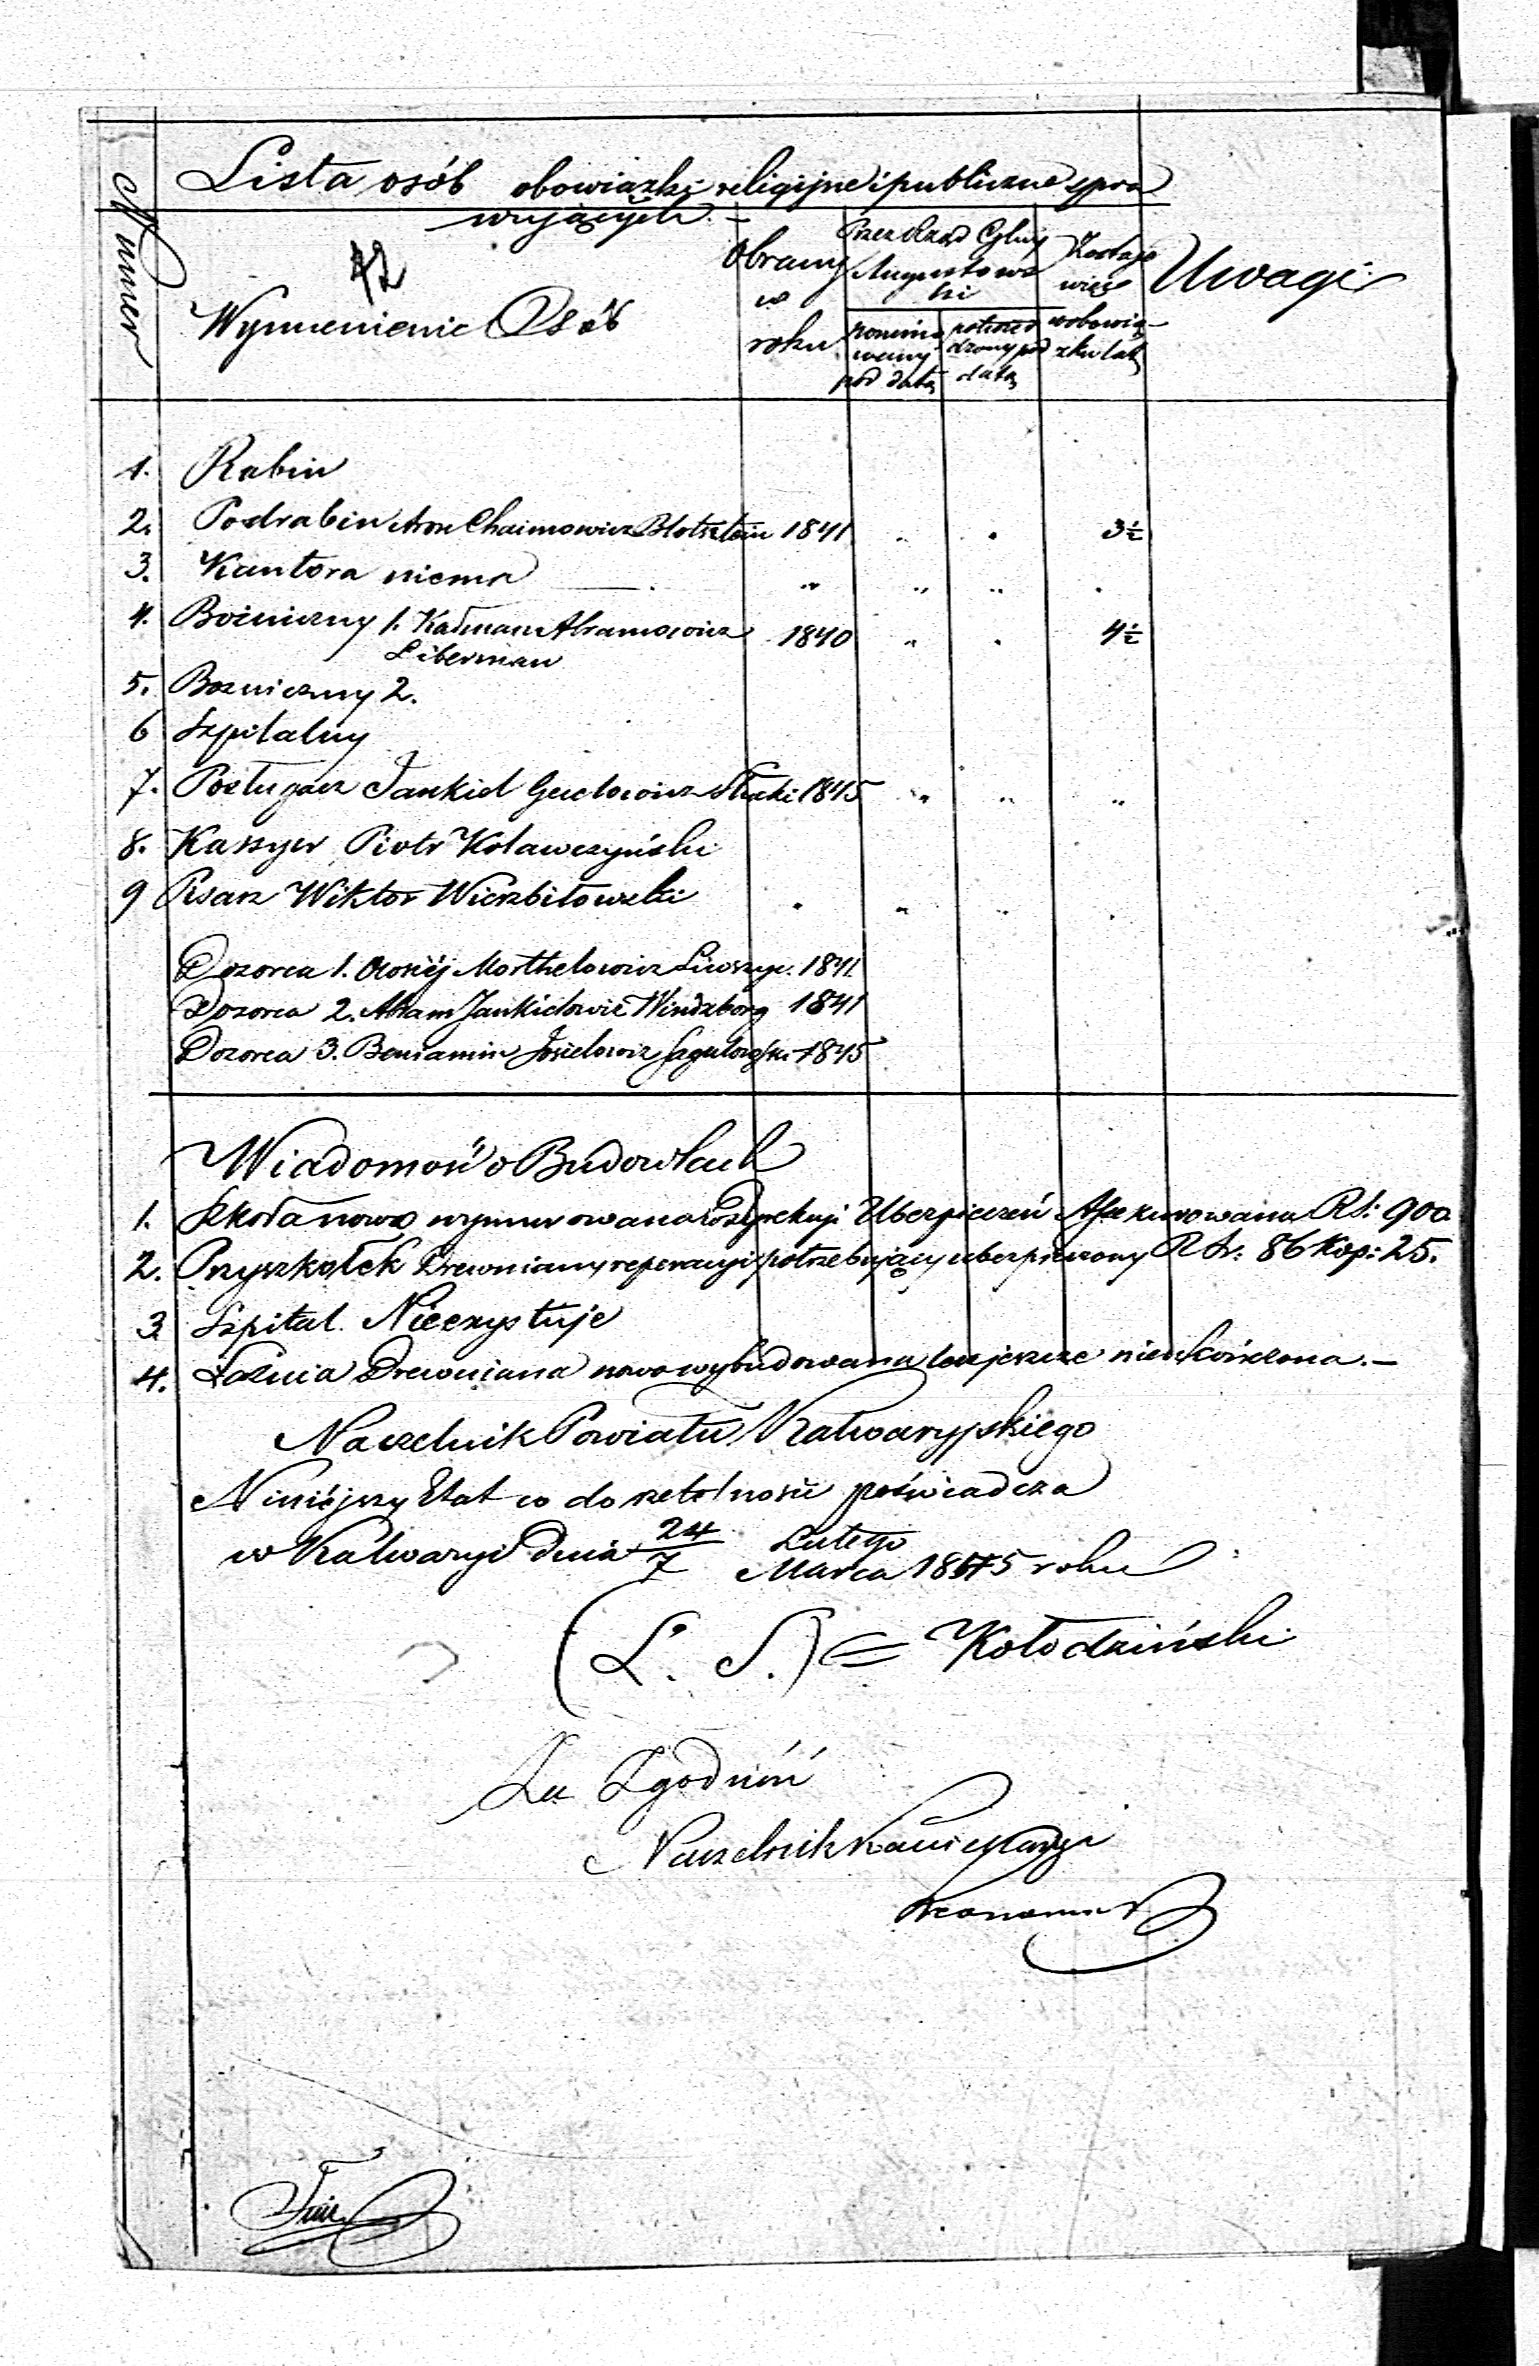 Lista osób obowiązki religijne i publiczne spra
wujących. –
Numer
Wymienienie Osób
Obrany w roku
Przez Rząd Gbny Augustowski
nomino wany pod datą
potwier dzony pod datą
Zostaje więc w obowią– zku lat
Uwagi
1. Rabin
2. Podrabin Aron Chaimowicz Blotsztein 1841 " " 3½
3. Kantora niema — " " " "
4. Bożniczny 1. Kałman Abramowicz 1840 " " 4½
Liberman
5. Bozniczny 2.
6 Szpitalny
7. Posługacz Jankiel 1845 " " "
8. Kassyer Piotr Kolawczyński
9 Pisarz Wiktor Wierzbiłowski " " " "
Dozorca 1. Mosiej Morthelowicz Liwszyc. 1841.
Dozorca 2. Abram Jankielowicz Windzberg 1841
Dozorca 3. Beniamin Josielowicz 1845
Wiadomość o Budowlach
1. Szkoła nowo wymurowana w Dyrekcji Ubezpieczeń Assekurowana RS: 900.
2. Przyszkołek Drewniany reperacyi potrzebujący ubezpieczony R Sr: 86 Kop: 25.
3 Szpital. Nieexystuje
4. Łaznia Drewniana nowo wybudowana lecz jeszcze nieukończona. –
Naczelnik Powiatu Kalwaryjskiego
Niniéjszy Etat co do rzetelności poświadcza
w Kalwaryi Dnia 24/7 Lutego/Marca 1845 roku
(L. S.) = Kołodziński
Za Zgodność
Naczelnik Kancellaryi